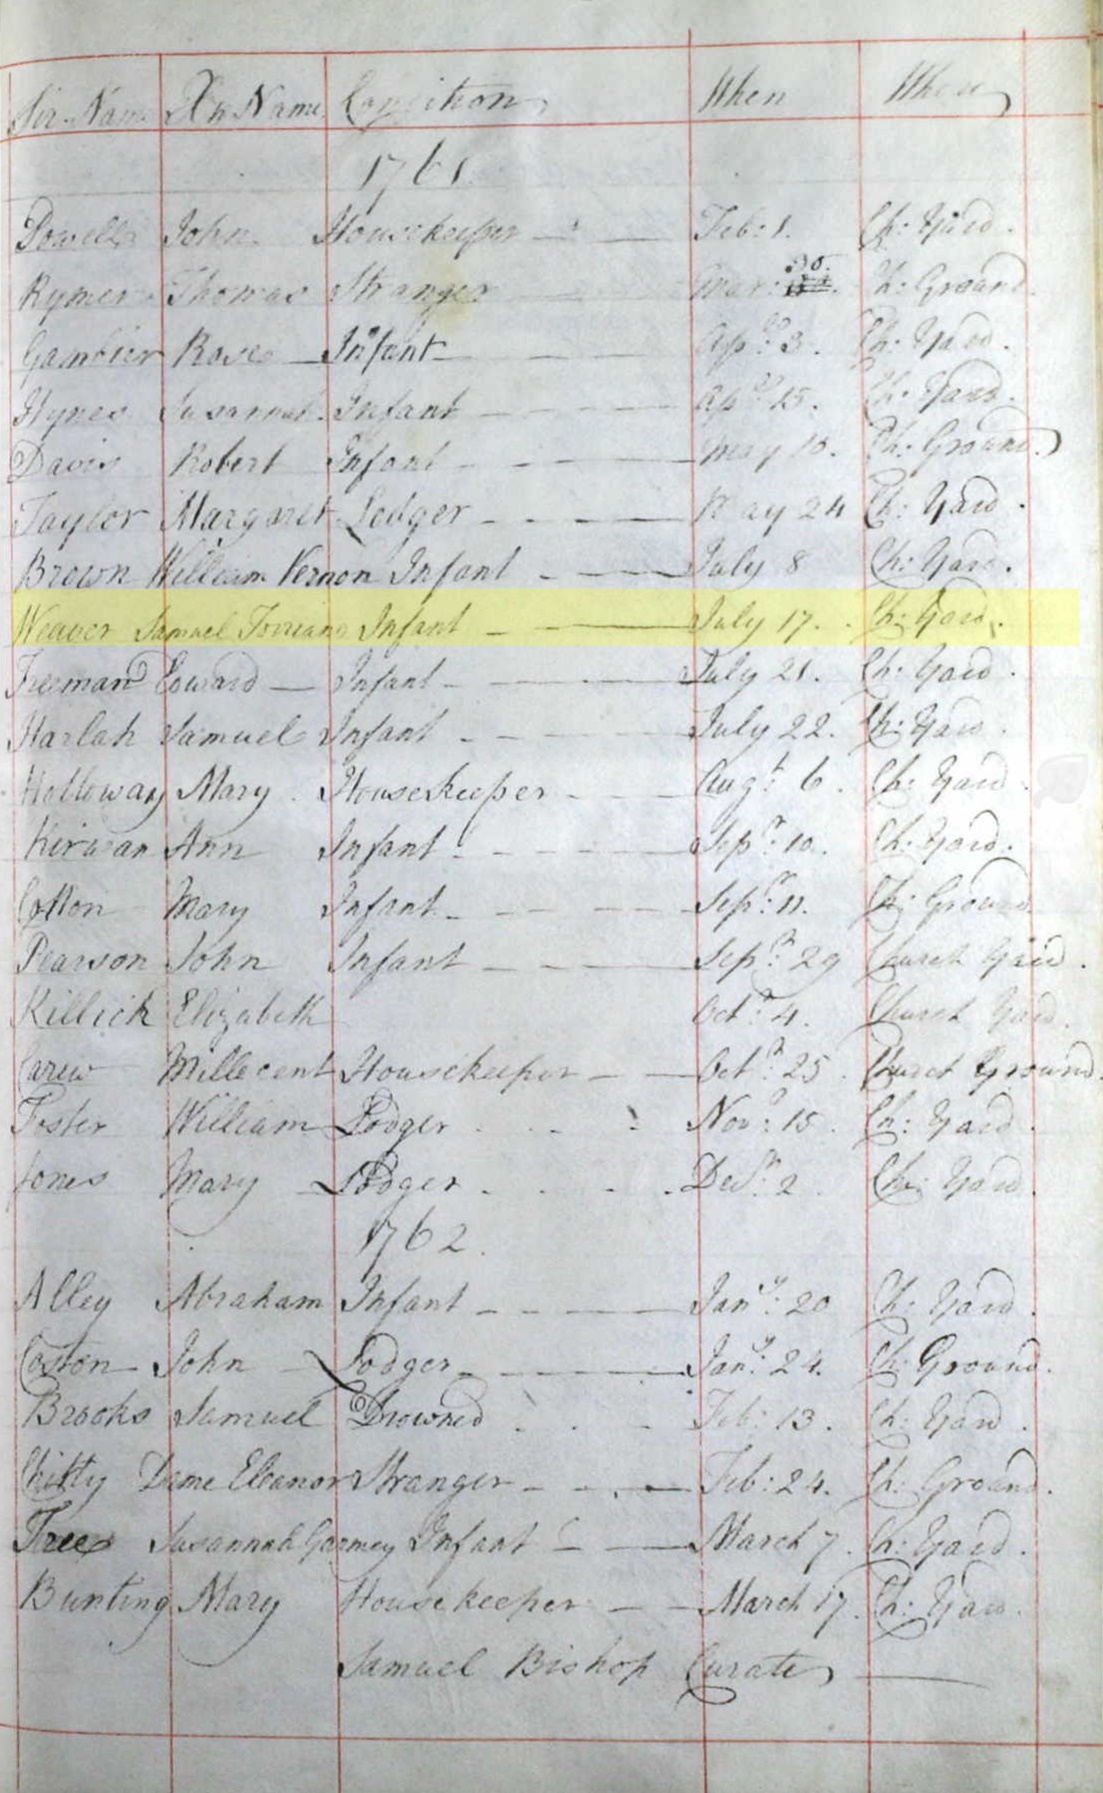 Sir Name Xn Name Condition When Where
1761
Dowell John Housekeeper Feb: 1. Ch: Yard.
Rymer Thomas Stranger Mar: 30. Ch: Ground.
Gambier Rose Infant Ap: 3. Ch: Yard.
Hynes Susannah Infant Ap: 15. Ch: Yard.
Davis Robert Infant May Ch: Ground
Taylor Margaret Lodger May 24 Ch: Yard.
Brown William Vernon Infant July 8 Ch: Yard.
Weaver Samuel Torriano Infant July 17. Ch: Yard.
Freeman Edward Infant July 21. Ch: Yard.
Harlah Samuel Infant July 22. Ch: Yard.
Holloway Mary Housekeeper Augt: 6. Ch: Yard.
Kirwan Ann Infant Sepr: 10. Ch: Yard.
Cotton Mary Infant Sepr: 11. Ch: Ground
Pearson John Infant Sepr: 29 Church Yard.
Killick Elizabeth Octr: 4. Church Yard.
Carew Millecent Housekeeper Octr: 25. Church Ground.
Foster William Lodger Novr: 15. Ch: Yard
Jones Mary Lodger Decr: 2 Ch: Yard.
1762.
Alley Abraham Infant Jany: 20 Ch: Yard.
Coston John Lodger Jany: 24. Ch: Ground.
Brooks Samuel Drowned Feb: 13. Ch: Yard.
Chitty Dame Eleanor Stranger Feb: 24. Ch: Ground.
Free Susannah Infant March 7. Ch: Yard.
Bunting Mary Housekeeper March 17. Ch: Yard.
Samuel Bishop Curate